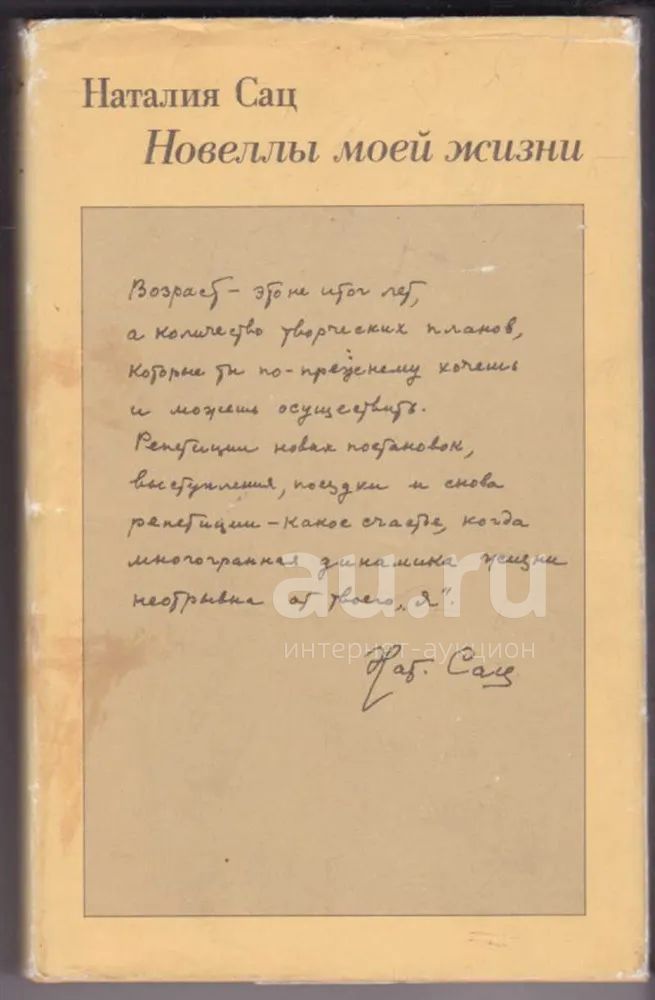 Наталия Сац
Новеллы моей жизни
Возраст – это не итог лет,
а количество творческих планов,
которые ты по-прежнему хочешь
и можешь осуществить.
Репетиции новых постановок,
выступления, поездки и снова
репетиции – какое счастье, когда
многогранная динамика жизни
неотрывна от твоего „я".
au.ru
интернет-аукцион
Нат. Сац